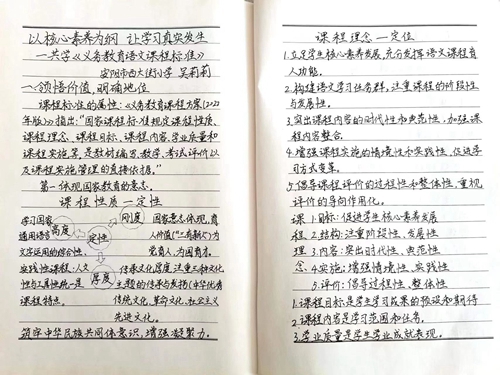 以核心素养为纲 让学习真实发生
—共学《义务教育语文课程标准》
安阳市西大街小学 吴莉莉
一、领悟价值,明确地位
课程标准的属性:《义务教育课程方案(2022
年版)》指出:"国家课程标准规定课程性质、
课程理念、课程目标、课程内容、学业质量和
课程实施等,是教材编写、教学、考试评价以
及课程实施管理的直接依据。"
第一体现国家教育的意志。
课程性质—定性
学习国家
通用语言
文字运用的综合性、
实践性课程:人文
性与工具性统一是
课程特点。
高度
定性
刚度
厚度
国家意志体现,育
人价值("三有新人")为
党育人,为国育才。
传承文化厚度注重三种文化
主题的传承与发扬(中华优秀
传统文化,革命文化,社会主义
先进文化。
筑牢中华民族共同体意识,增强凝聚力。
课程理念—定位
1.立足学生核心素养发展,充分发挥语文课程育
人功能。
2.构建语文学习任务群,注重课程的阶段性
与发展性。
3.突出课程内容的时代性和典范性,加强课
程内容整合。
4.增强课程实施的情境性和实践性,促进学
习方式变革。
5.倡导课程评价的过程性和整体性,重视
评价的导向作用化。
课程理念
1.目标:促进学生核心素养发展
2.结构:注重阶段性、发展性
3.内容:突出时代性、典范性
4.实施:增强情境性、实践性
5.评价:倡导过程性、整体性
1.课程目标是学生学习成果的预设和期待
2.课程内容是学习范围和任务。
3.学业质量是学生学业成就表现。